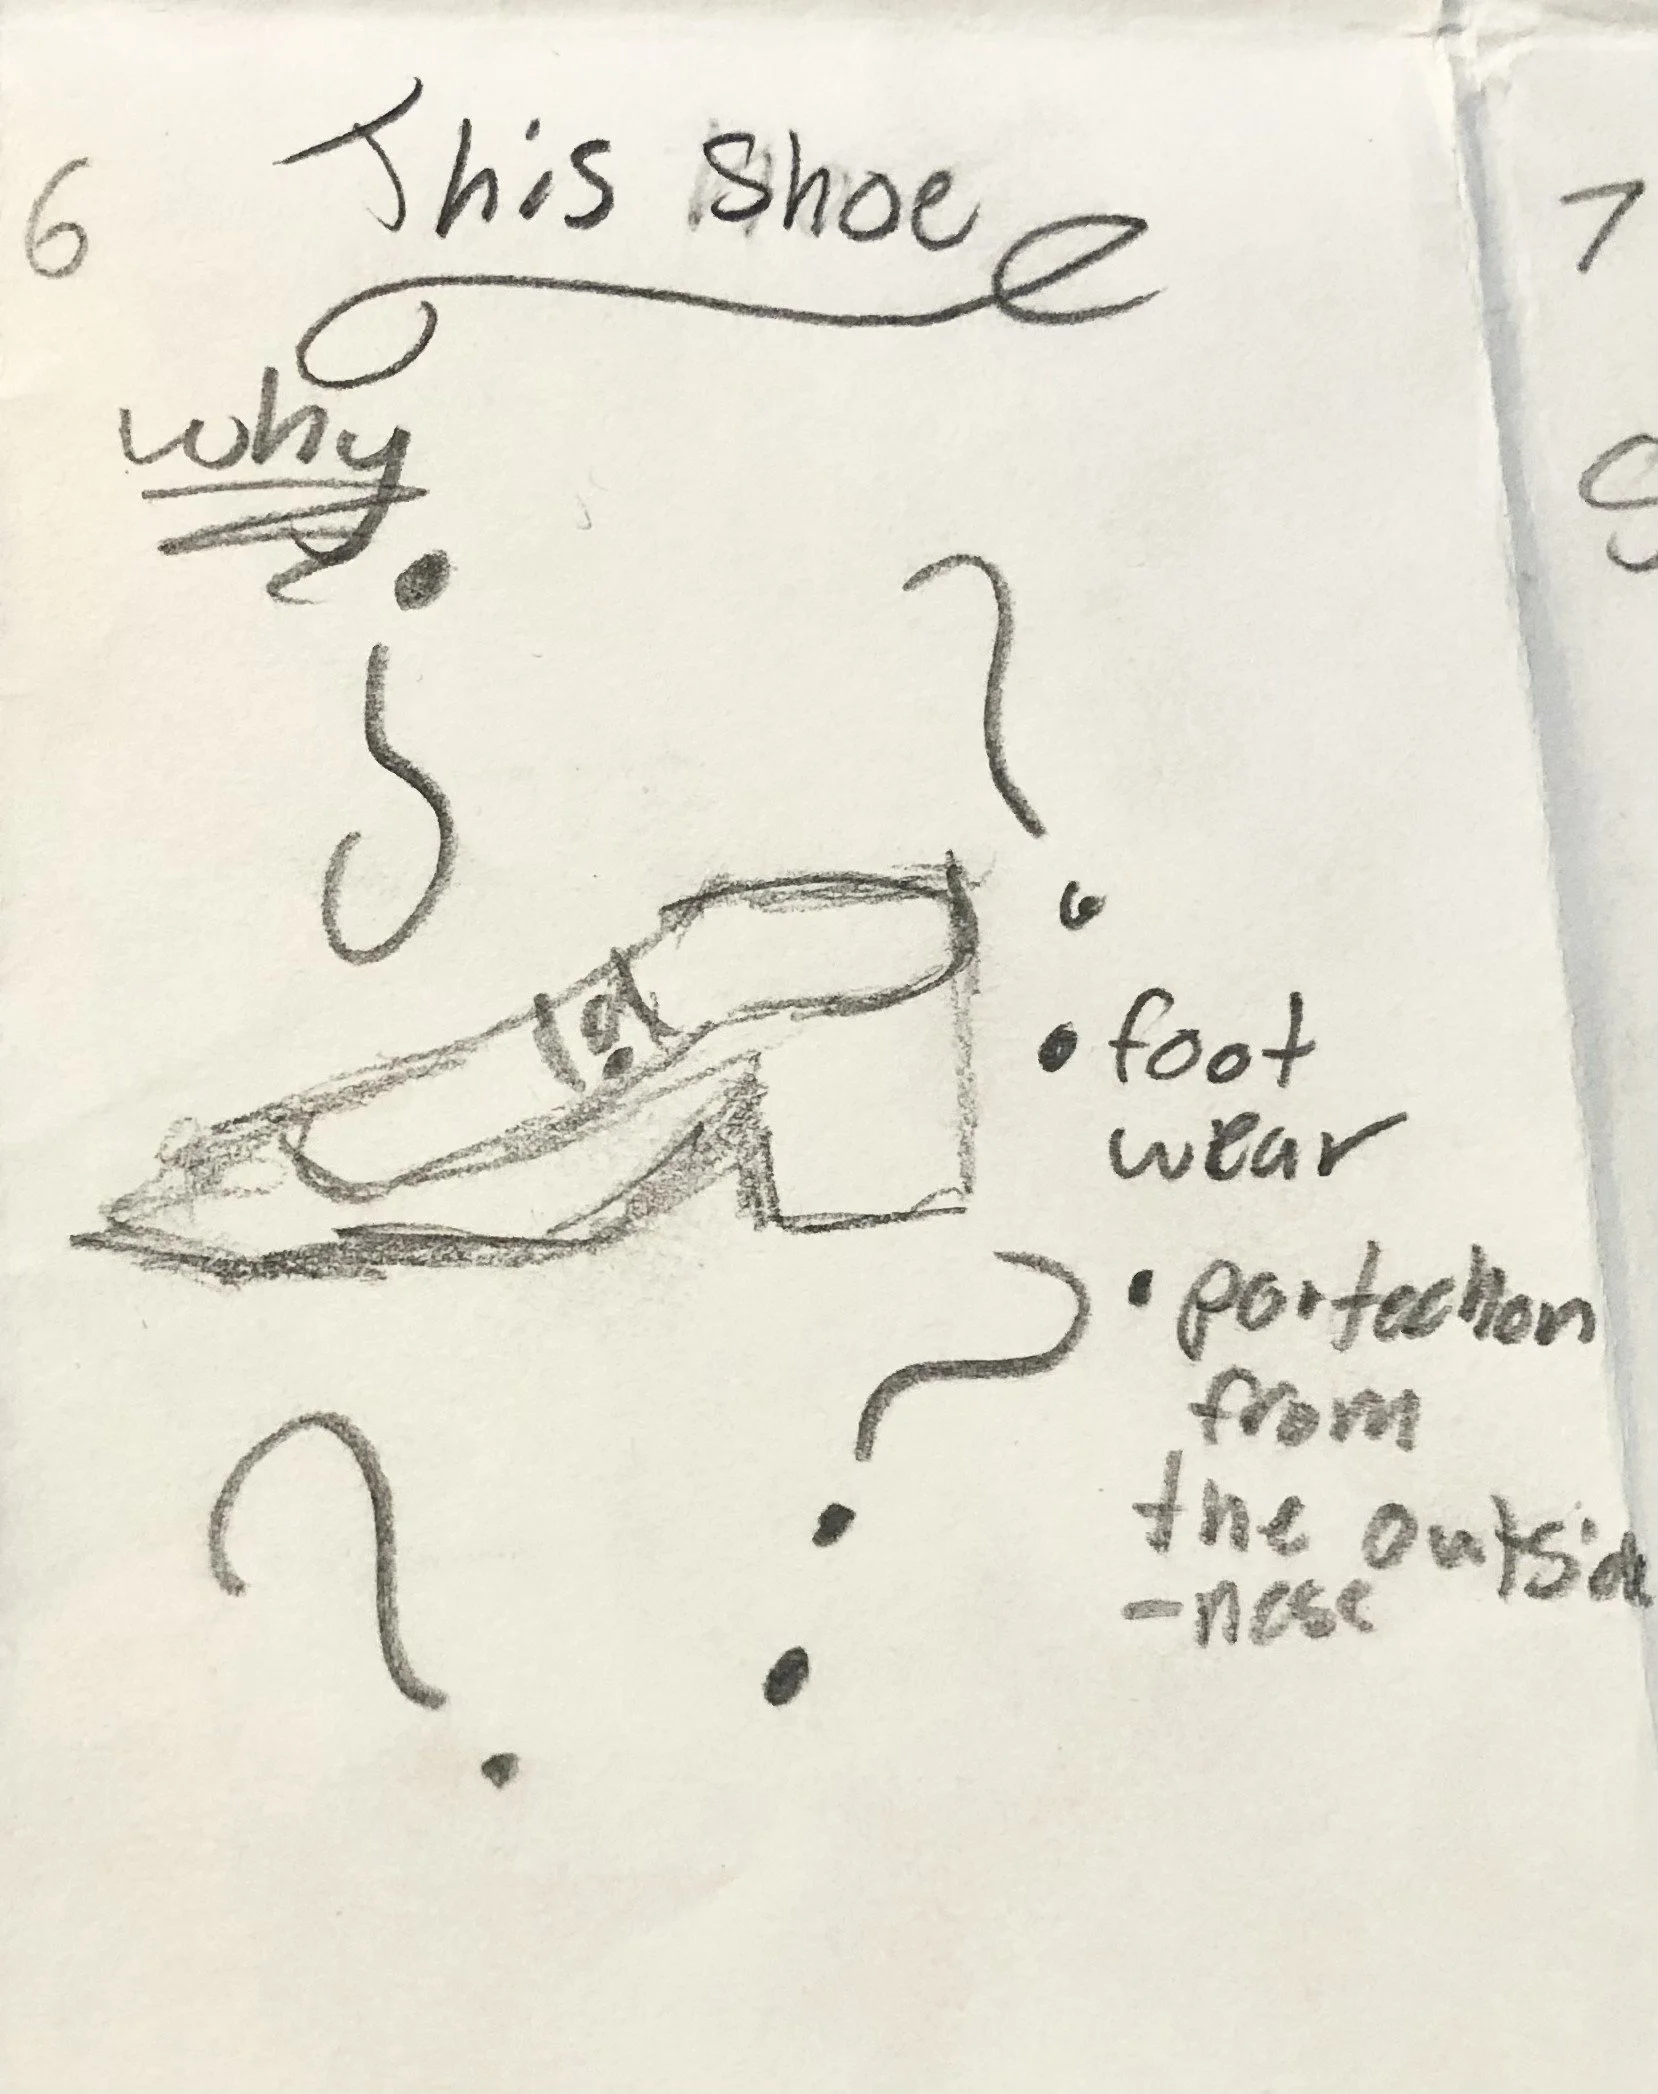 6 This shoe 7
why
• foot
wear
• portection
from
the outside
-nese